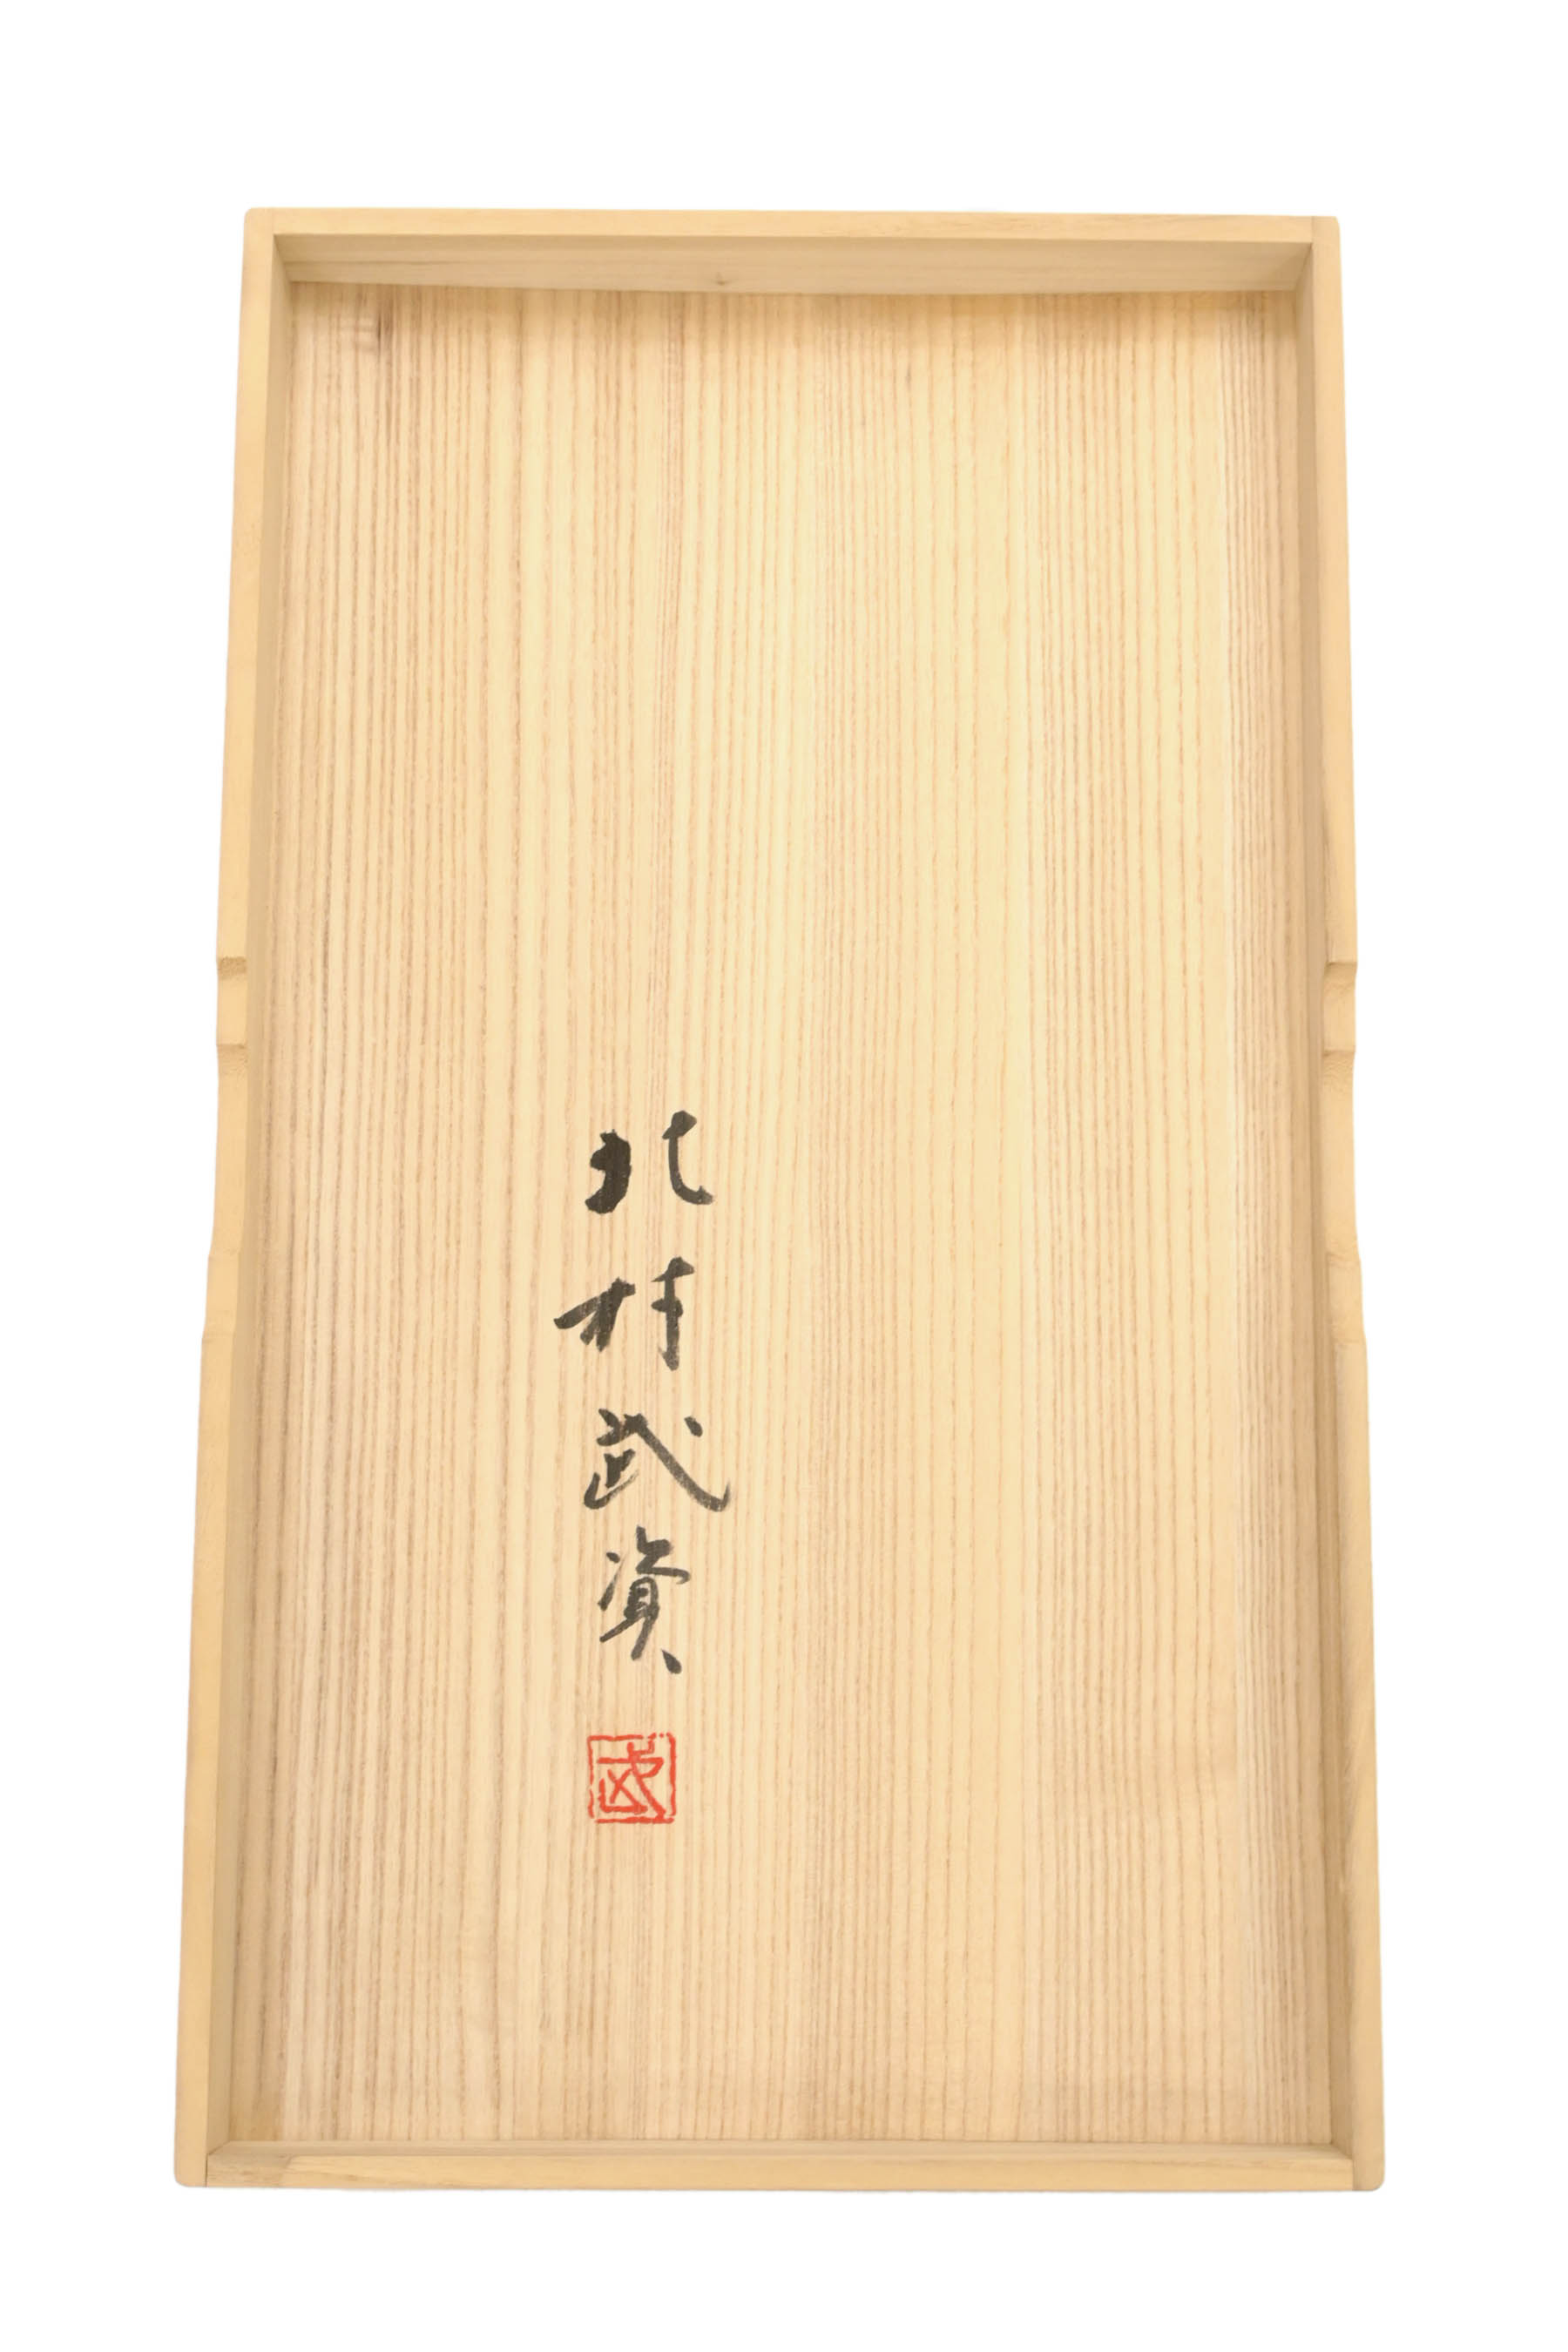 北村武資
武